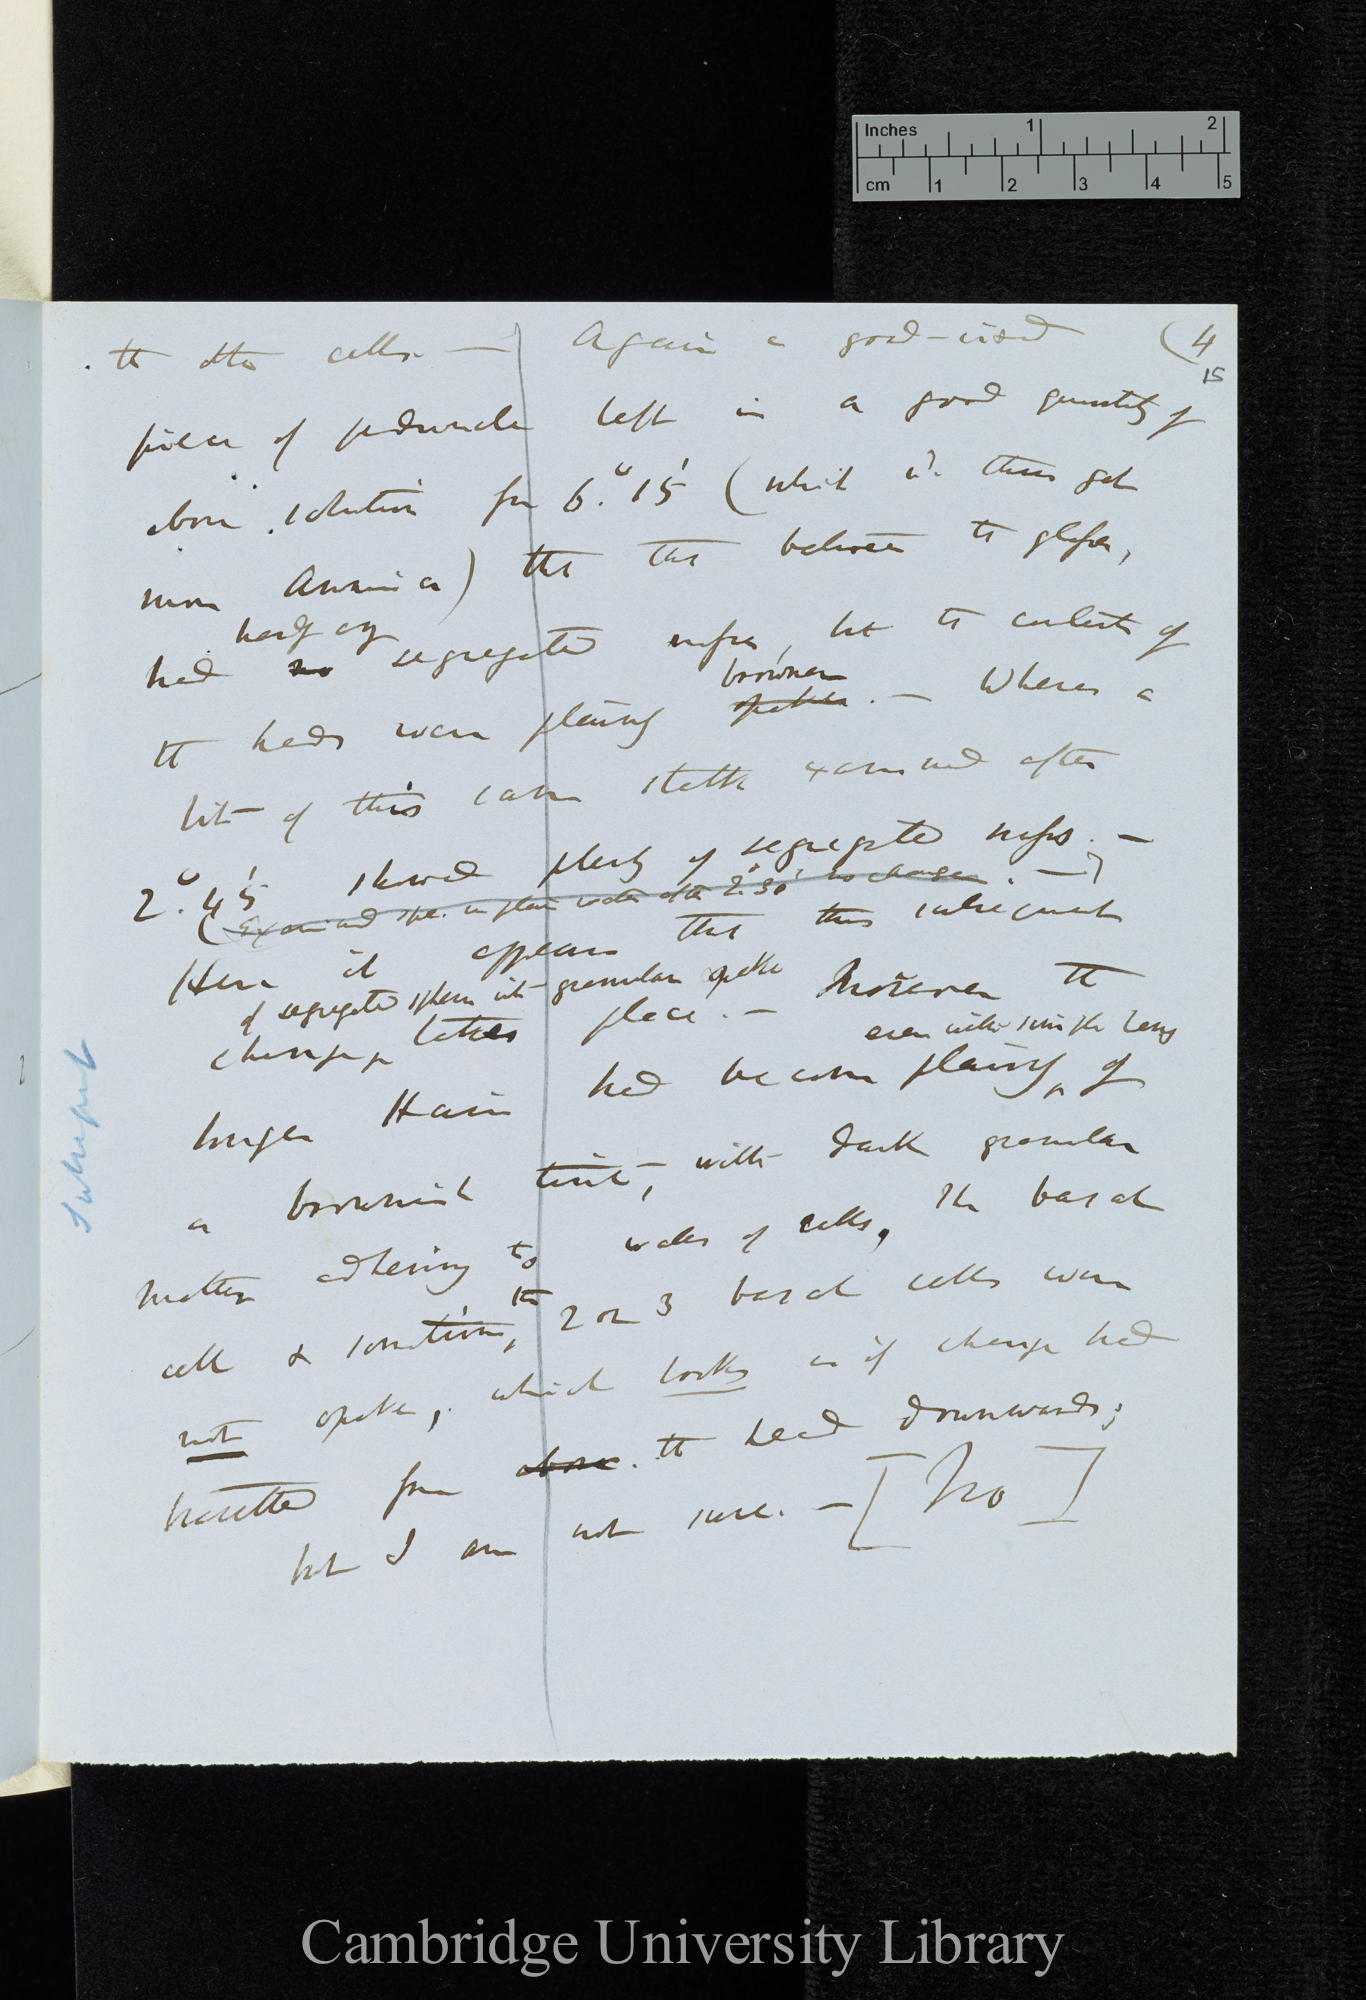 Inches 1 2
cm 1 2 3 4 5
(4
15
the other cells. — Again a good-sized
piece of peduncle left in a good quantity of
above solution for 6°. 15' (which wd. thus get
more Ammonia) the between the glasses,
half of
had no segregated masses, but the contents of
browner
the heads were plainly opake. — Whereas a
bit of this same stalk examined after
2°. 45' showed plenty of segregated masses. —
(Examined spec. in plain water after 2°.30' no change. —)
Here it appears that this subsequent
of segregated sphere into granular opake
change takes place. — Moreover the
even with simple lens
longer Hairs had become plainly of
a brownish tint, with dark granular
matter adhering to walls of cells, the basal
cell & sometimes, the 2 or 3 basal cells were
not opake, which looks as if change had
travelled from above. the head downwards;
but I am not sure. — [No]
Cambridge University Library